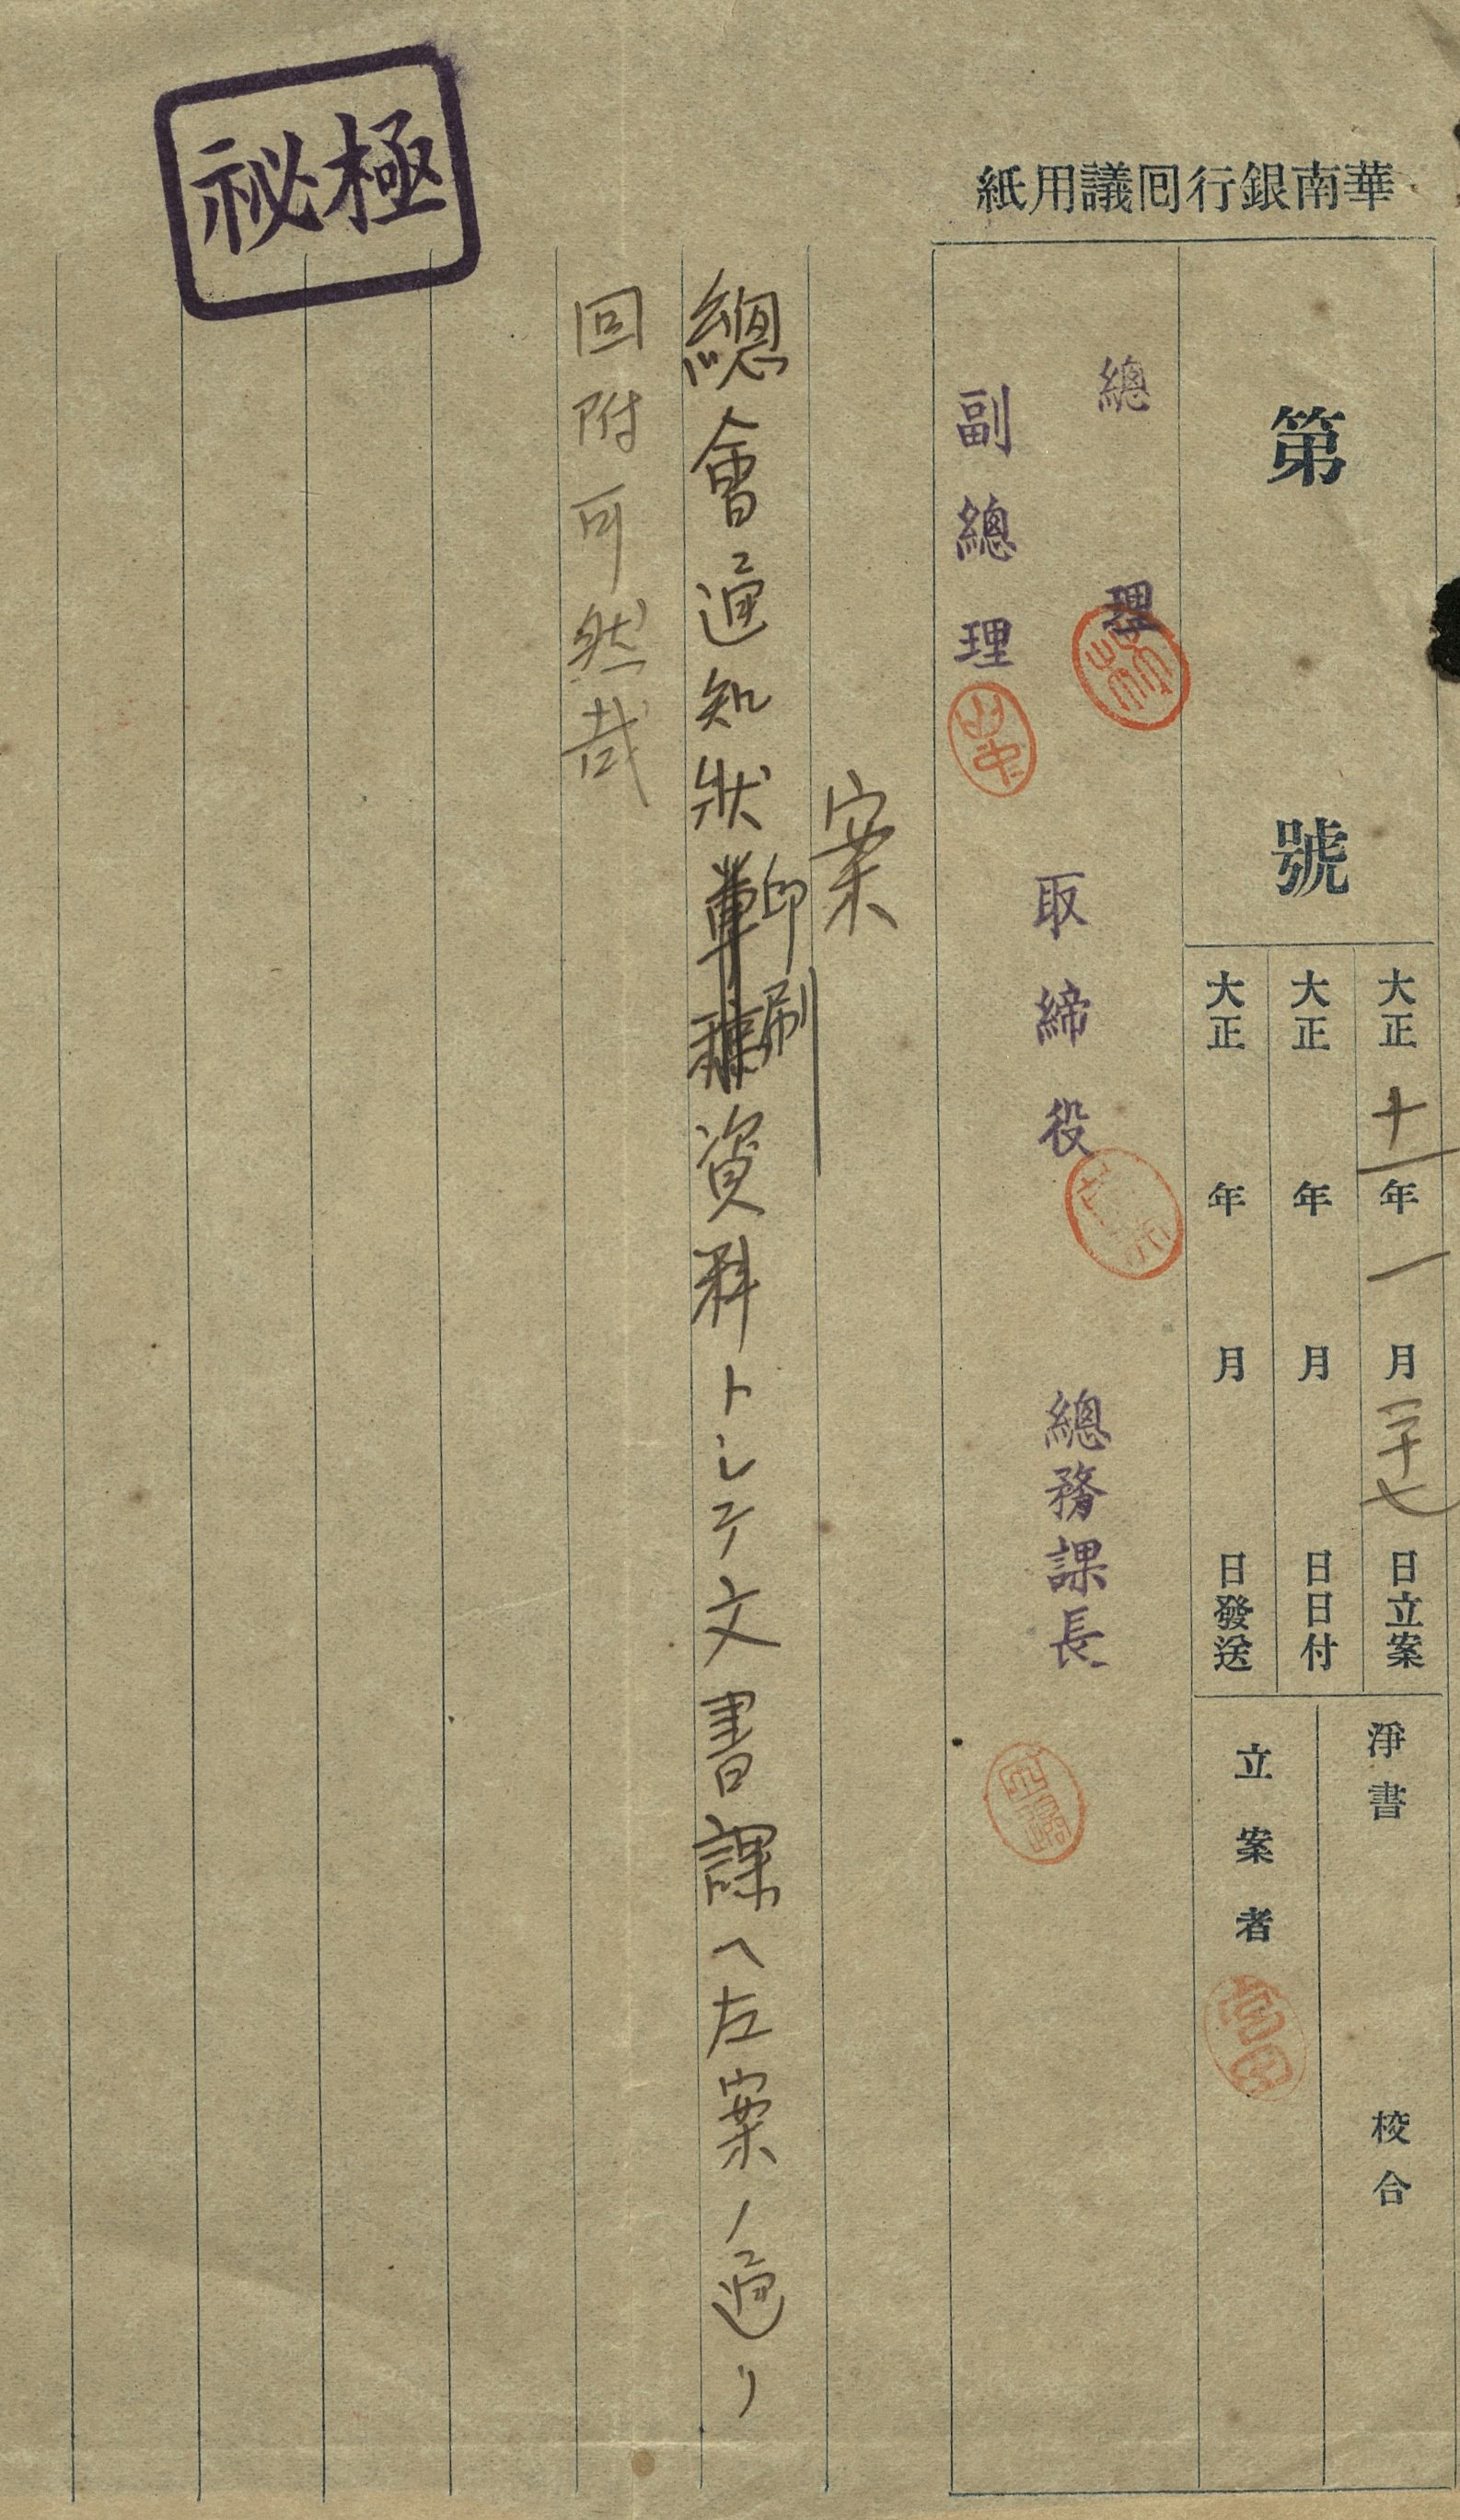 華南銀行囘議用紙
極祕
第 號
大正十一年一月二十七日立案
大正 年 月 日日付
大正 年 月 日發送
淨書 校合
立案者
總理
副總理
取締役
總務課長
案
總會通知狀印刷資料トシテ文書課ヘ左案ノ通リ
回附可然哉